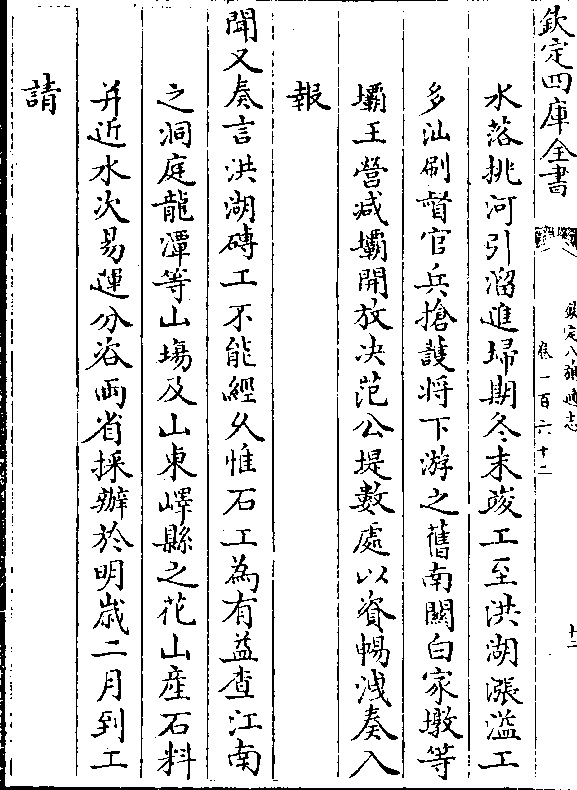 欽定四庫全書
欽定八旗通志
卷一百六十二
十二
水落挑河引溜進埽期冬末竣工至洪湖漲溢工
多汕刷督官兵搶護将下游之舊南關白家墩等
壩王營減壩開放决范公堤數處以資暢洩奏入
報
聞又奏言洪湖磚工不能經久惟石工為有益查江南
之洞庭龍潭等山塲及山東嶧縣之花山產石料
并近水次易運分咨兩省採辦於明歲二月到工
請